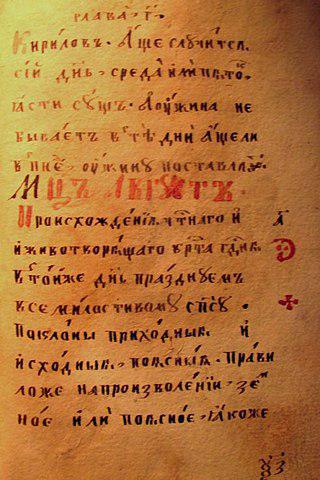 глава · г҃ ·
Кирилов̾ · А́ще случится
сїй дн҃ь · среда̀ и҆лѝ пѧто́
ꙗсти сꙋщ · А оу҆́жина не
быва́етъ в тѣ̀ дни̑ А́ще ли
оу҆́жинꙋ поставлѧ
Мц҃ъ А҆́вгꙋстъ ·
Происхожде́нїѧ, чт҃на́го и҆
и҆ животворѧ́щаго крт҃а гд҃нѧ ·
в то́йже дн҃ь празднꙋемъ
всемл҃стивомꙋ сп҃сꙋ ·
Покло́ны прихо́дныѧ · и҆
и҆схо́дныѧ · поѧсны́ѧ · Прави
ло же на произволе́нїи · зе
но́е и҆лѝ поѧсно́е · ꙗ҆́коже